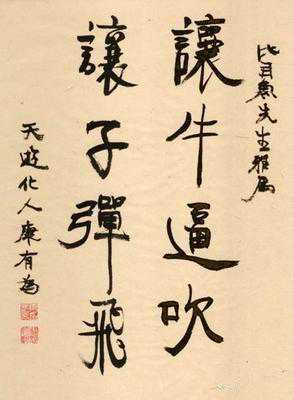 比目魚先生雅属
讓牛逼吹
讓子彈飛
天游化人康有為